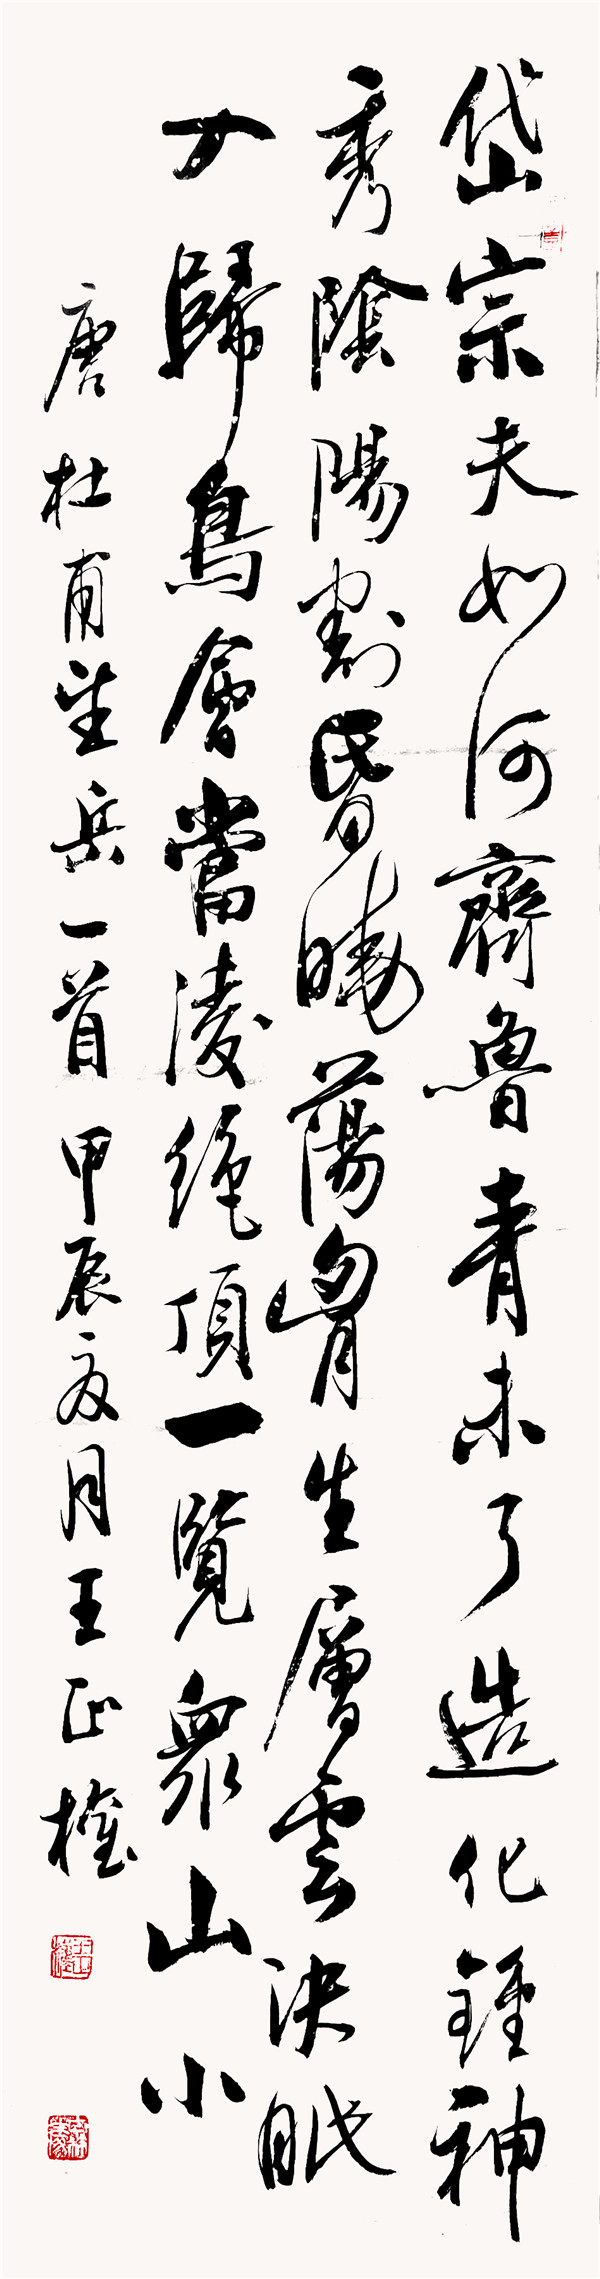 岱宗夫如何齊魯青未了造化鍾神
秀陰陽割昬曉蕩胷生層雲決眦
入歸鳥會當淩絕頂一覽眾山小
唐杜甫望岳一首 甲辰夏月王正權